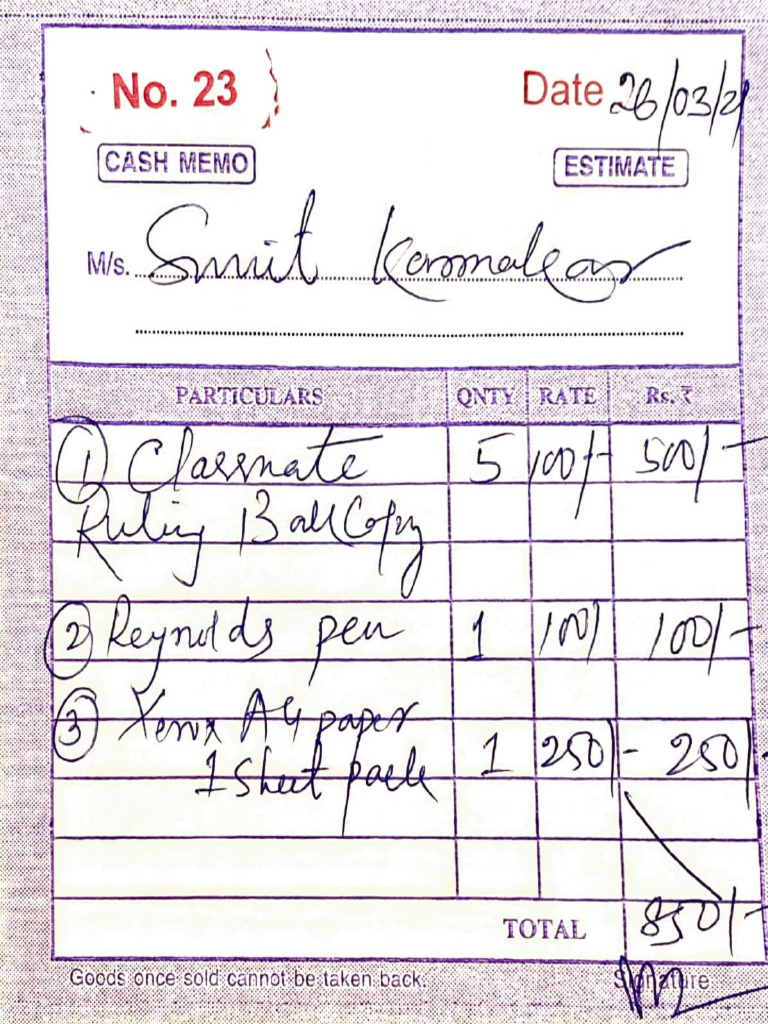 No. 23 Date 26/03/21
CASH MEMO ESTIMATE
M/s. Smit Karmakar
PARTICULARS QNTY RATE Rs. ₹
1 Classmate 5 100/- 500/-
Ruling Ball Copy
2 Reynolds pen 1 100/ 100/-
3 Xerox A4 paper
1 Sheet pack 1 250/- 250/-
TOTAL 850/-
Goods once sold cannot be taken back. Signature